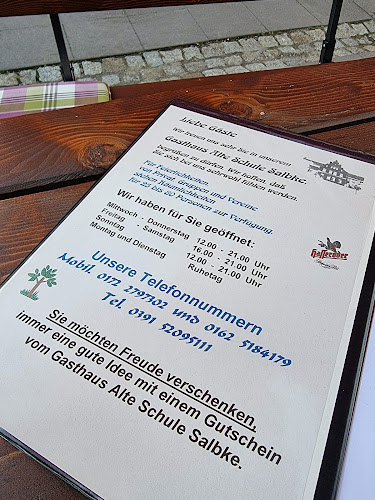 Liebe Gäste
Wir freuen uns sehr Sie in unserem
Gasthaus Alte Schule Salbke,
begrüßen zu dürfen. Wir hoffen, daß
Sie sich bei uns sehr wohl fühlen werden.
Für Feierlichkeiten
von Privat, Gruppen und Vereine
stehen Räumlichkeiten
für 25 bis 80 Personen zur Verfügung.
Wir haben für Sie geöffnet:
Mittwoch - Donnerstag 12.00 - 21.00 Uhr
Freitag - Samstag 16.00 - 21.00 Uhr
Sonntag 12.00 - 21.00 Uhr
Montag und Dienstag Ruhetag
Hasseröder
Unsere Telefonnummern
Mobil. 0172 2797102 und 0162 5184179
Tel. 0391 52095111
Sie möchten Freude verschenken,
immer eine gute Idee mit einem Gutschein
vom Gasthaus Alte Schule Salbke.